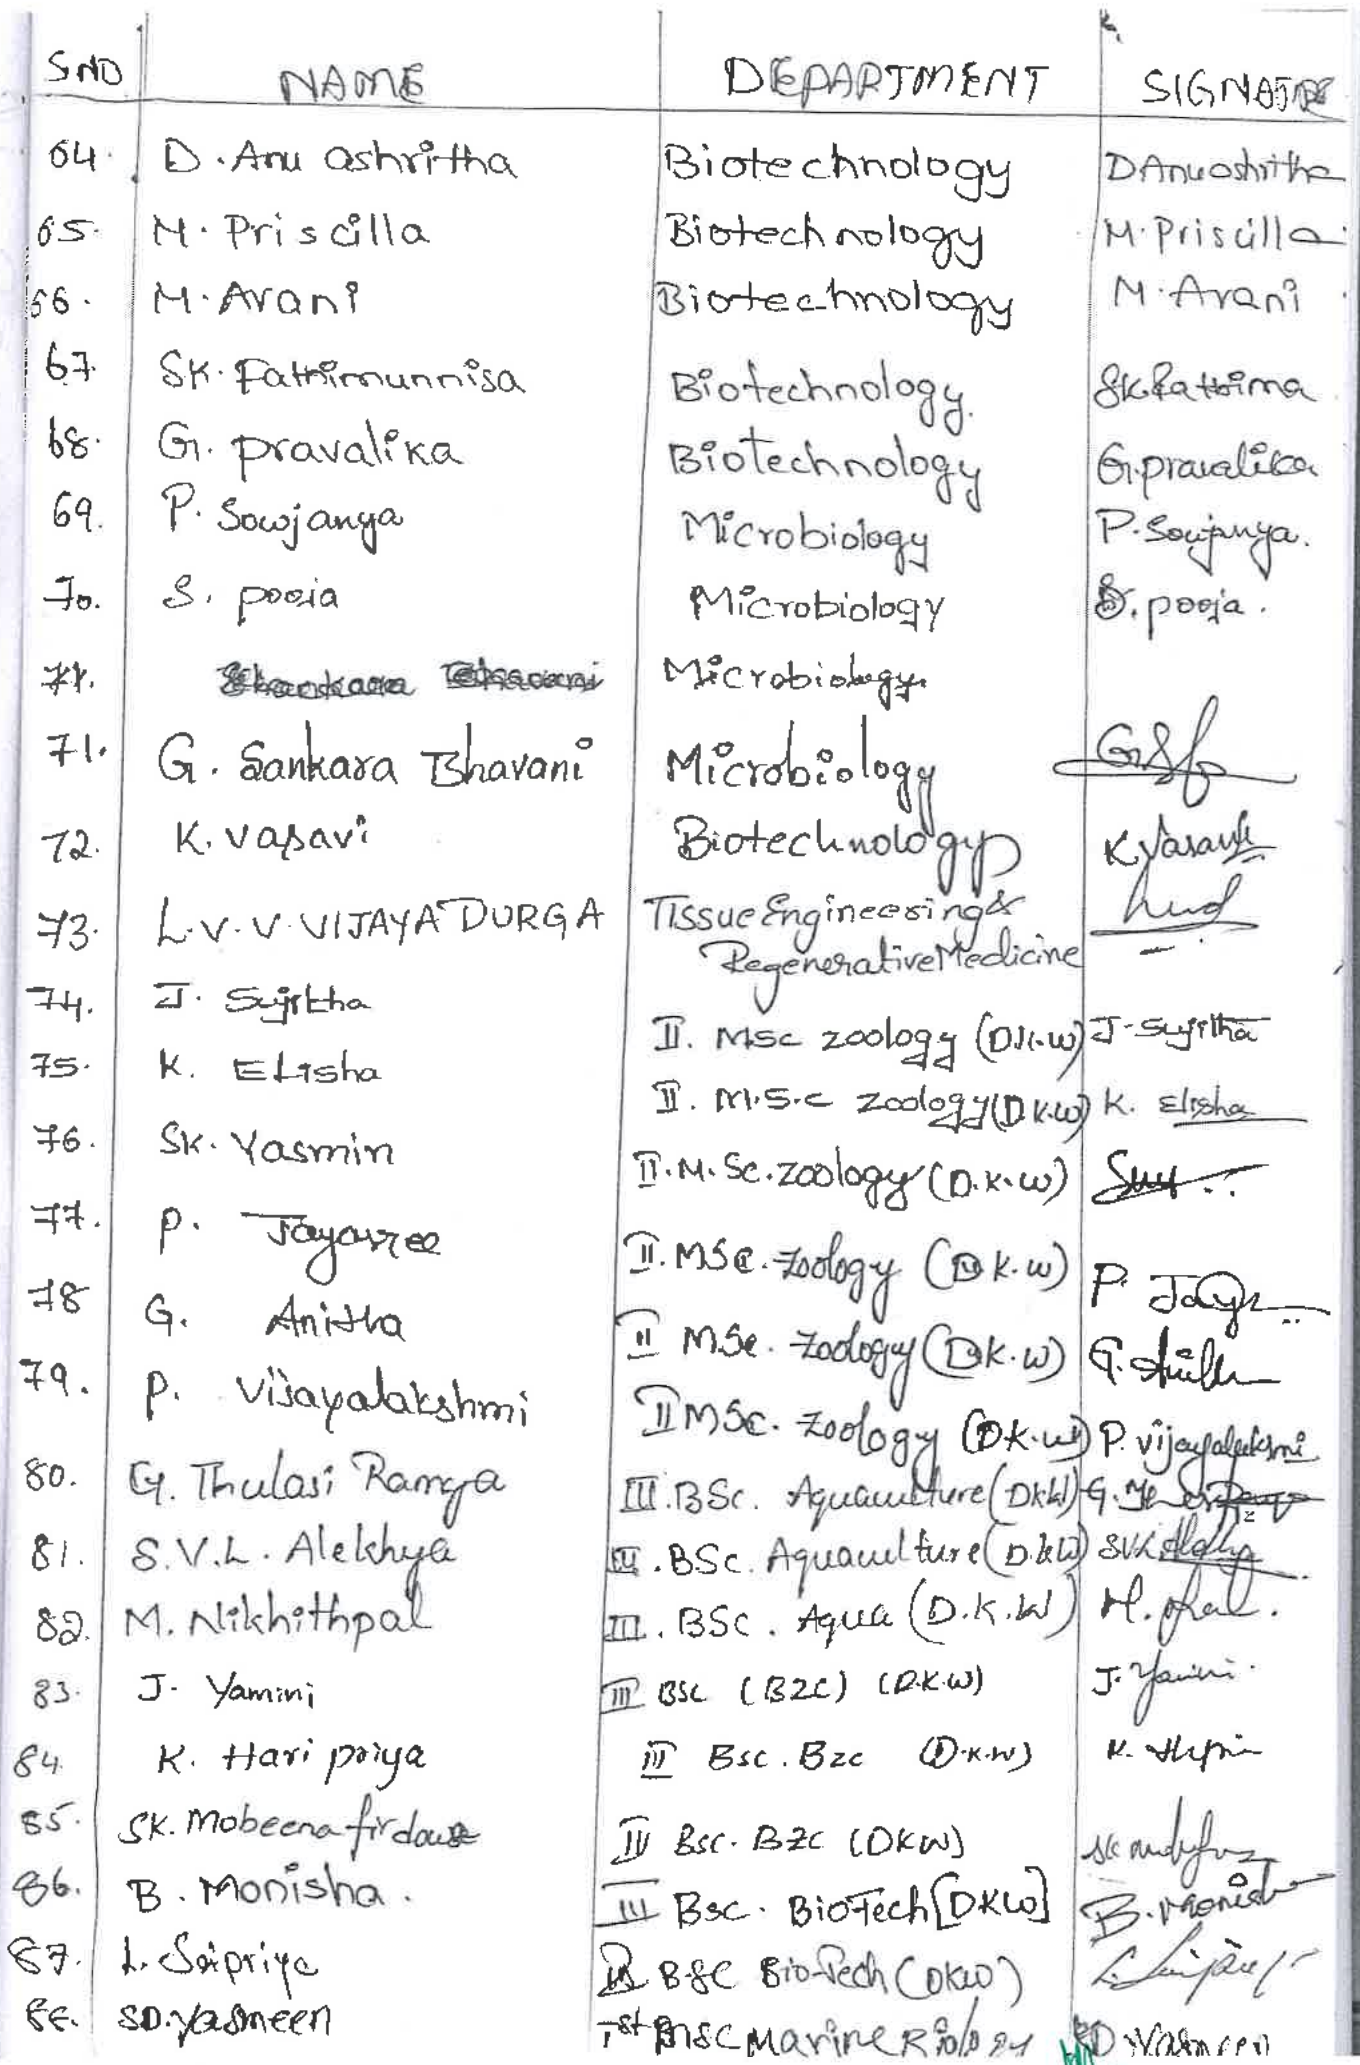 S.NO NAME DEPARTMENT SIGNATURE
64. D. Anu ashritha Biotechnology D Anu ashritha
65. M. Priscilla Biotechnology M. Priscilla
66. M. Avani Biotechnology M. Avani
67. SK. Fathimunnisa Biotechnology. SK. Fathima
68. G. pravalika Biotechnology G. pravalika
69. P. Sowjanya Microbiology P. Sowjanya.
70. S. pooja Microbiology S. pooja.
71. Microbiology.
71. G. Sankara Bhavani Microbiology
72. K. Vasavi Biotechnology K Vasavi
73. L.V.V. VIJAYA DURGA Tissue Engineering &
Regenerative Medicine
74. J. Sujitha II. MSc zoology (D.K.W) J. Sujitha
75. K. Elisha II. M.S.c zoology (D.K.W) K. Elisha
76. SK. Yasmin II. M. Sc. zoology (D.K.W)
77. P. Jayasree II. MSc. Zoology (D.K.W) P. Jay
78 G. Anitha II MSc. Zoology (D.K.W) G.
79. P. Vijayalakshmi II MSc. Zoology (D.K.W) P. Vijayalakshmi
80. G. Thulasi Ramga III. BSc. Aquaculture (DKW) G.
81. S.V.L. Alekhya III. BSc. Aquaculture (D.K.W) SVL
82. M. Nikhithpal III. BSc. Aqua (D.K.W) M. Pal.
83. J. Yamini III BSc (BZC) (D.K.W) J. Yamini.
84. K. Hari priya III Bsc. Bzc (D.K.W) K.
85. SK. Mobeena firdouse IV Bsc. BZC (DKW) SK
86. B. Monisha. III Bsc. BioTech [DKW] B. Monisha
87. L. Saipriya BSC Bio-Tech (DKW) L. Saipriya
88. SD. Yasmeen Ist MSC Marine Biology SD Yasmeen